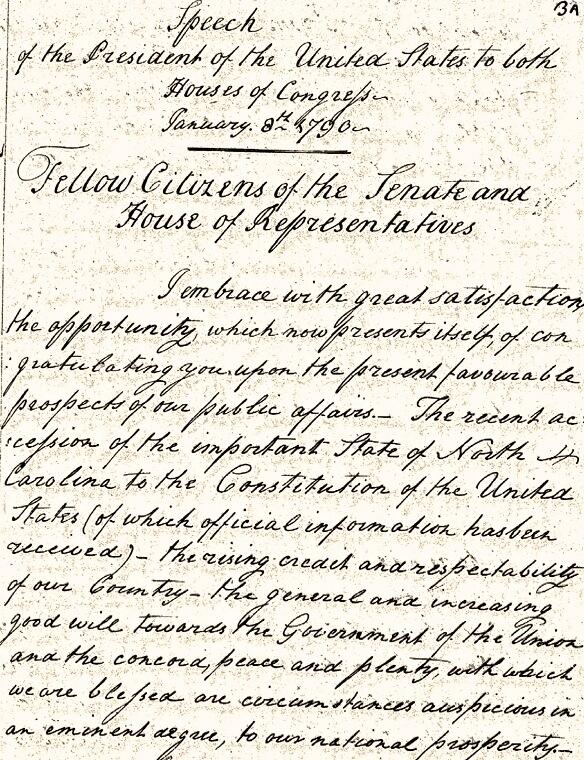 3A
Speech
of the President of the United States to both
Houses of Congress
January. 8th 1790
Fellow Citizens of the Senate and
House of Representatives
I embrace with great satisfaction
the opportunity, which now presents itself, of con
gratulating you upon the present favourable
prospects of our public affairs.— The recent ac-
cession of the important State of North
Carolina to the Constitution of the United
States (of which official information has been
received) – the rising credit and respectability
of our Country – the general and increasing
good will towards the Government of the Union
and the concord, peace and plenty, with which
we are blessed are circumstances auspicious in
an eminent degree, to our national prosperity.—